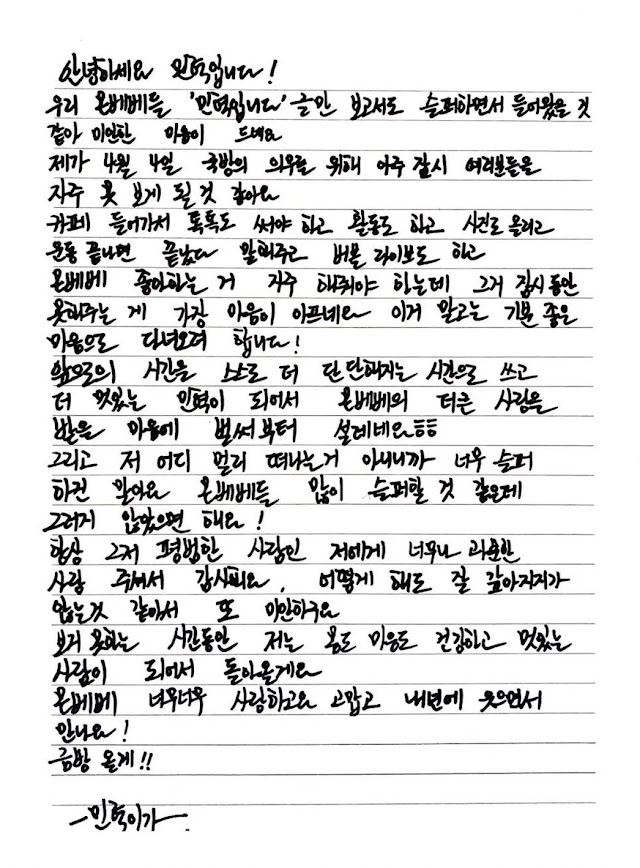 안녕하세요 민혁입니다!
우리 몬베베들 '민혁입니다' 글만 보고서도 슬퍼하면서 들어왔을 것
같아 미안한 마음이 드네요
제가 4월 4일 국방의 의무를 위해 아주 잠시 여러분들을
자주 못 보게 될 것 같아요
카페 들어가서 톡톡도 써야 하고 활동도 하고 사진도 올리고
운동 끝나면 끝났다 말해주고 버블 라이브도 하고
몬베베 좋아하는 거 자주 해줘야 하는데 그거 잠시동안
못해주는 게 가장 마음이 아프네요 이거 말고는 기분 좋은
마음으로 다녀오려 합니다!
앞으로의 시간을 스스로 더 단단해지는 시간으로 쓰고
더 멋있는 민혁이 되어서 몬베베의 더큰 사랑을
받을 마음에 벌써부터 설레네요ㅎㅎ
그리고 저 어디 멀리 떠나는거 아니니까 너무 슬퍼
하진 말아요 몬베베들 많이 슬퍼할 것 같은데
그러지 않았으면 해요!
항상 그저 평범한 사람인 저에게 너무나 과분한
사랑 주셔서 감사해요. 어떻게 해도 잘 갚아지지가
않는것 같아서 또 미안하구요
보지 못하는 시간동안 저는 몸도 마음도 건강하고 멋있는
사람이 되어서 돌아올게요
몬베베 너무너무 사랑하고요 고맙고 내년에 웃으면서
만나요!
금방 올게!!
-민혁이가-